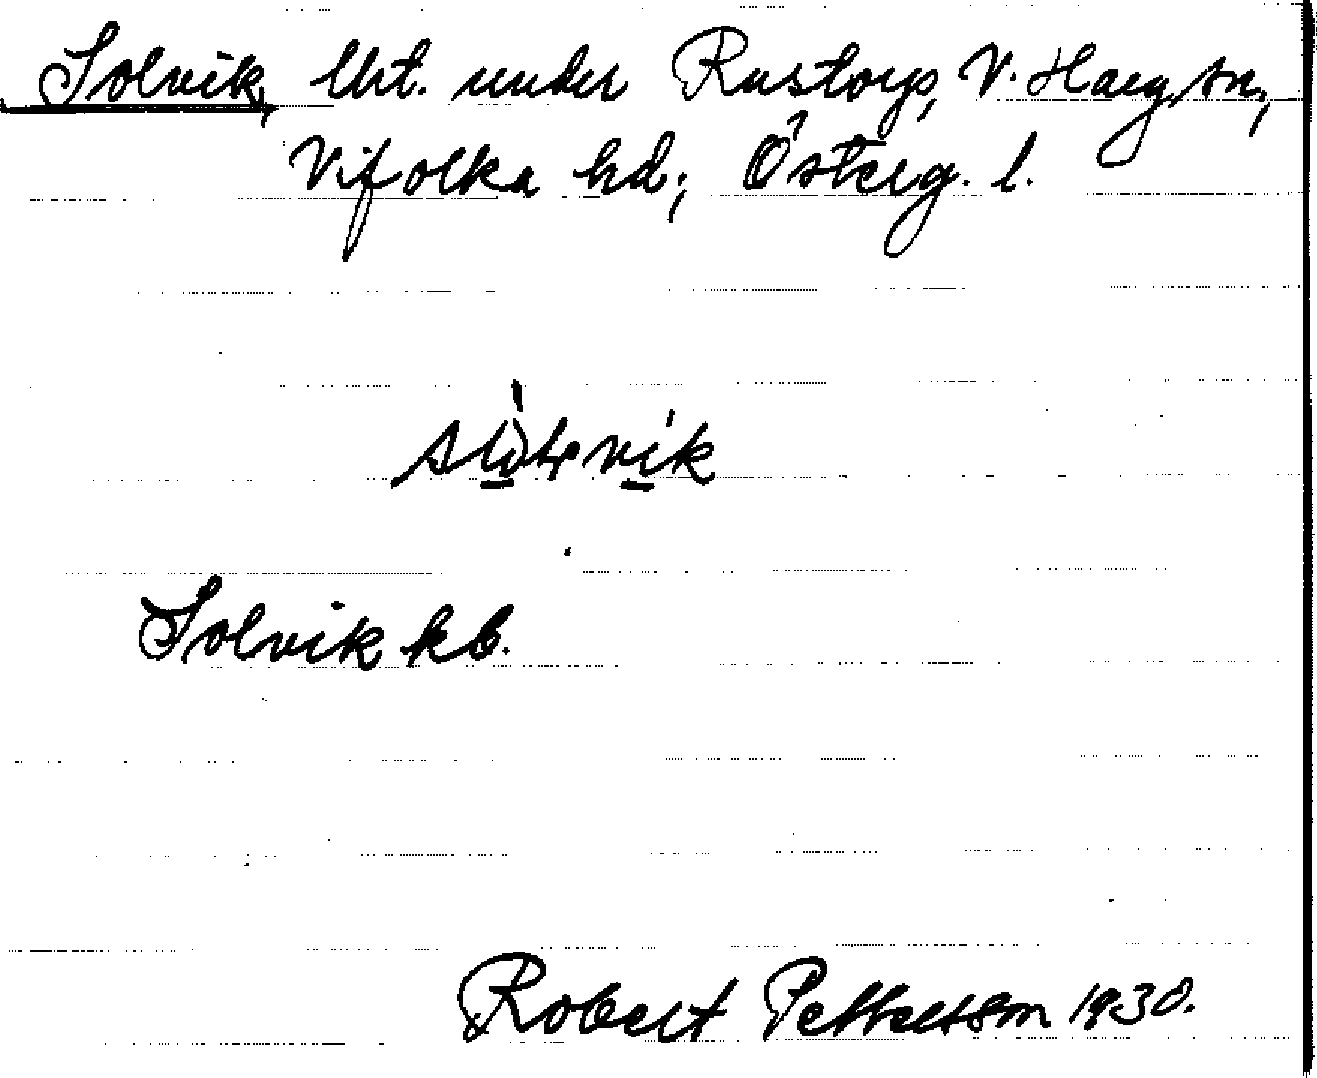 Solvik, lht. under Rustorp, V. Harg sn,
Vifolka hd; Österg. l.
Solvik kb.
Robert Pettersson 1930.